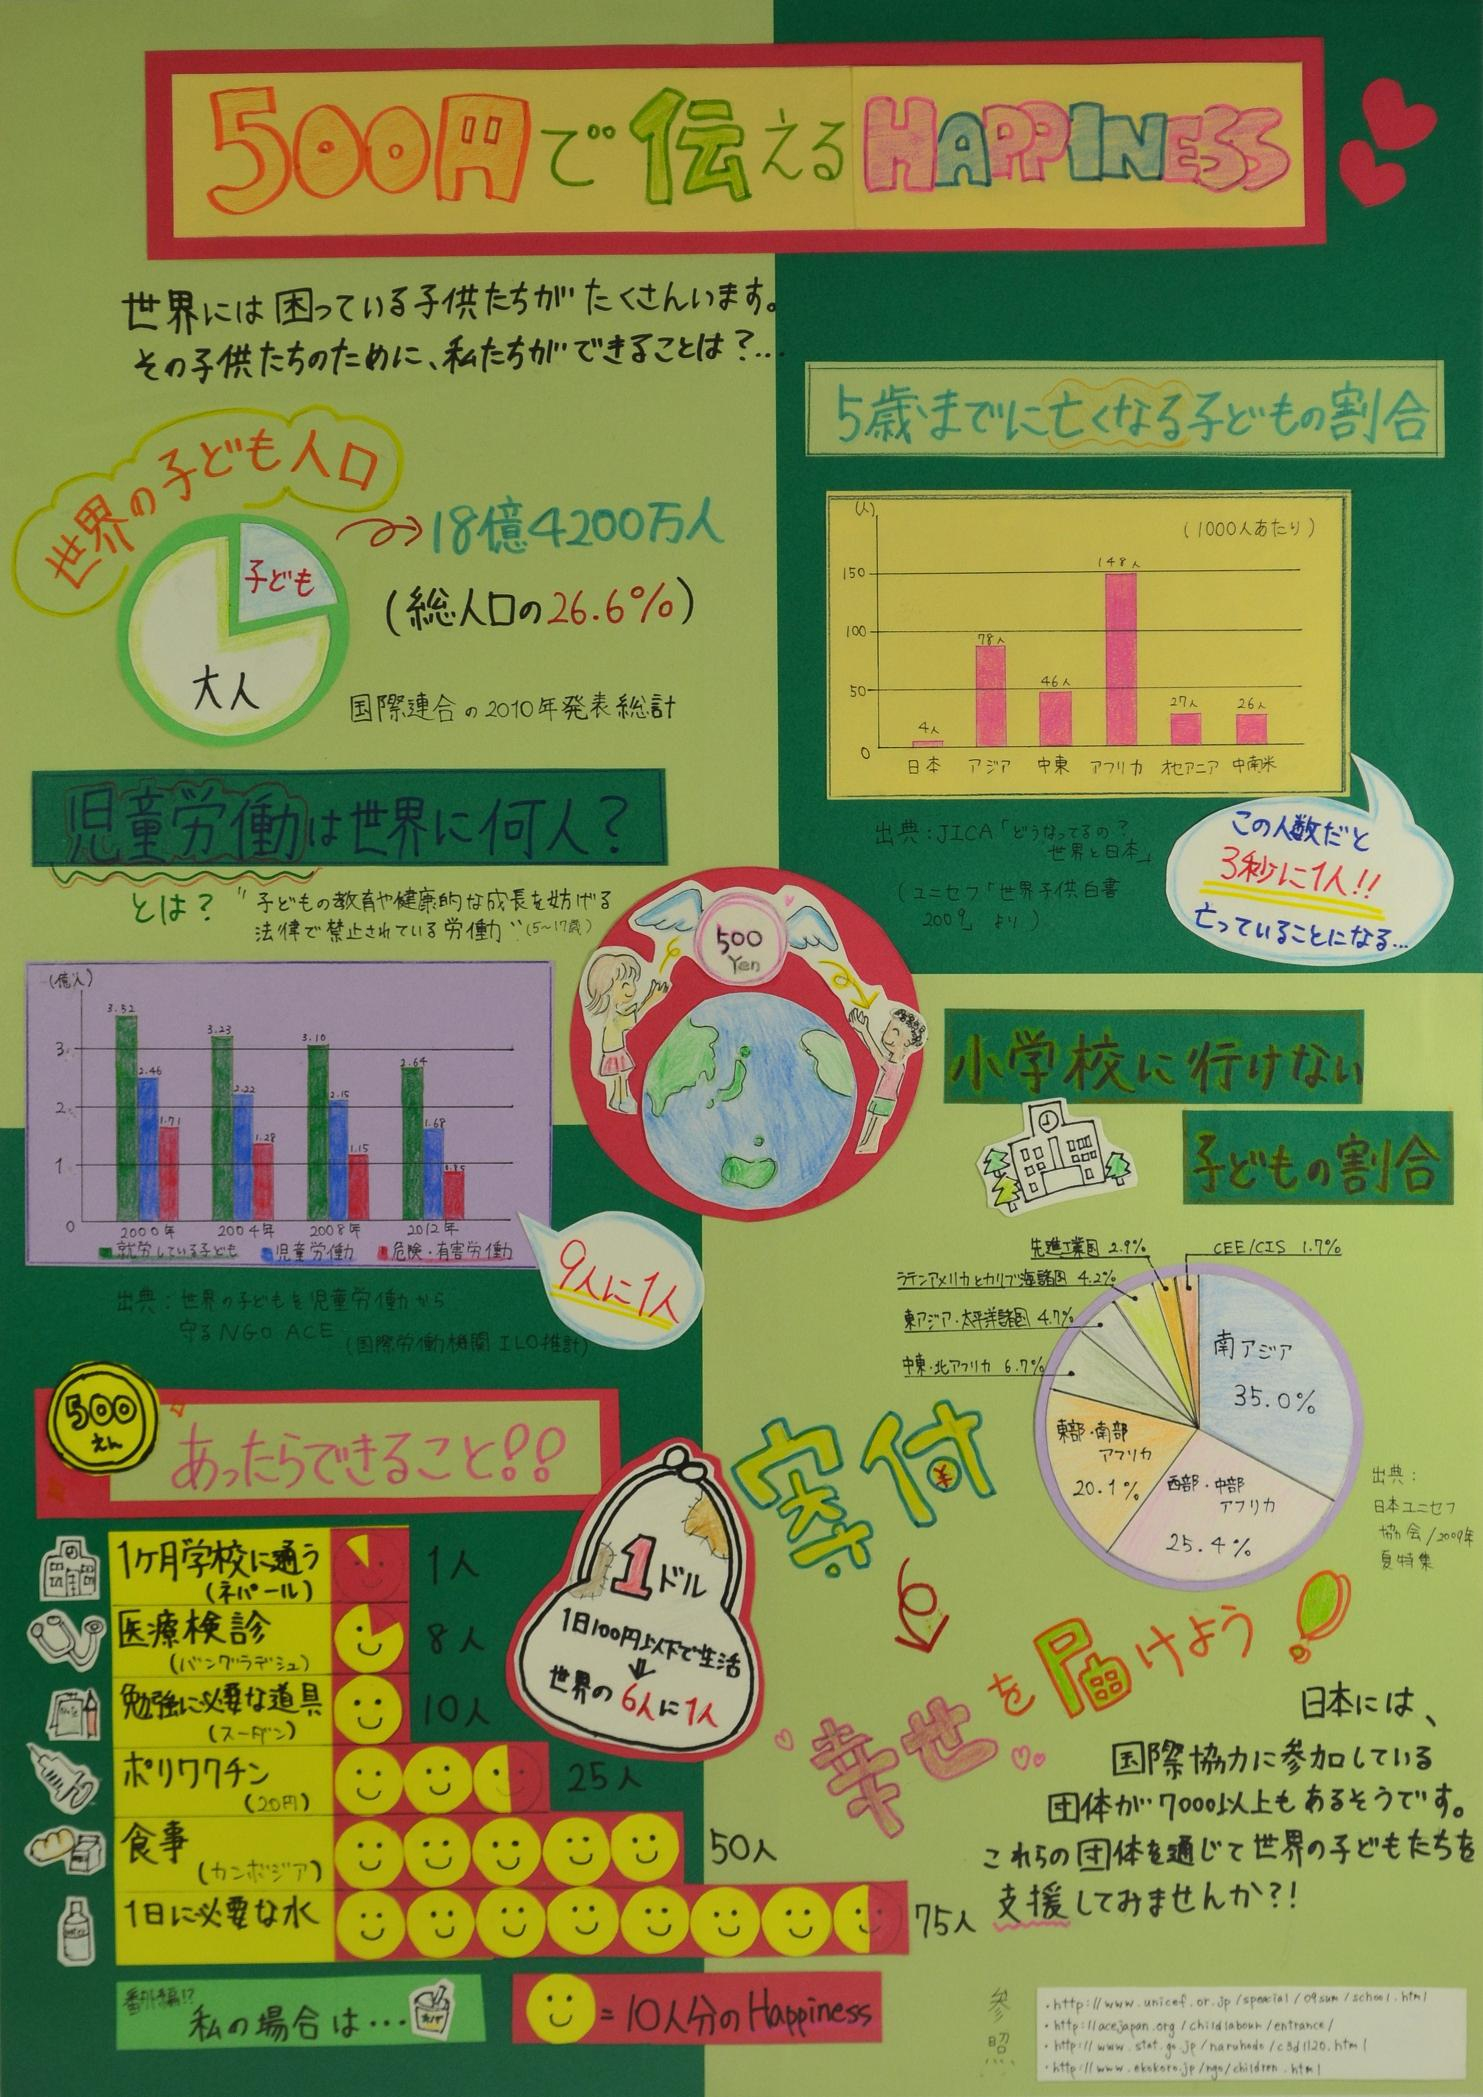 500円で伝えるHAPPINESS
世界には困っている子供たちがたくさんいます。
その子供たちのために、私たちができることは?…
世界の子ども人口
子ども
大人
18億4200万人
(総人口の26.6%)
国際連合の2010年発表総計
5歳までに亡くなる子どもの割合
(人)
(1000人あたり)
150
100
50
0
4人
78人
46人
148人
27人
26人
日本 アジア 中東 アフリカ オセアニア 中南米
出典:JICA「どうなってるの?
世界と日本」
(ユニセフ「世界子供白書
2009」より)
この人数だと
3秒に1人!!
亡っていることになる…
児童労働は世界に何人?
とは? "子どもの教育や健康的な成長を妨げる
法律で禁止されている労働"(5~17歳)
(億人)
3
2
1
0
3.52 2.46 1.71
3.23 2.22 1.28
3.10 2.15 1.15
2.64 1.68 0.85
2000年 2004年 2008年 2012年
就労している子ども 児童労働 危険・有害労働
9人に1人
出典:世界の子どもを児童労働から
守るNGO ACE (国際労働機関ILO推計)
500
Yen
小学校に行けない
子どもの割合
先進工業国 2.9%
CEE/CIS 1.7%
ラテンアメリカとカリブ海諸国 4.2%
東アジア・太平洋諸国 4.7%
中東・北アフリカ 6.7%
南アジア
35.0%
東部・南部
アフリカ
20.1%
西部・中部
アフリカ
25.4%
出典:
日本ユニセフ
協会/2009年
夏特集
500
えん
あったらできること!!
1ヶ月学校に通う
(ネパール)
1人
医療検診
(バングラデシュ)
8人
勉強に必要な道具
(スーダン)
10人
ポリワクチン
(20円)
25人
食事
(カンボジア)
50人
1日に必要な水
75人
1ドル
1日100円以下で生活
世界の6人に1人
寄付
幸せを届けよう!
日本には、
国際協力に参加している
団体が7000以上もあるそうです。
これらの団体を通じて世界の子どもたちを
支援してみませんか?!
番外編!?
私の場合は…
=10人分のHappiness
参照
・http://www.unicef.or.jp/special/09sum/school.html
・http://acejapan.org/childlabour/entrance/
・http://www.stat.go.jp/naruhodo/c3d1120.html
・http://www.ekokoro.jp/ngo/children.html